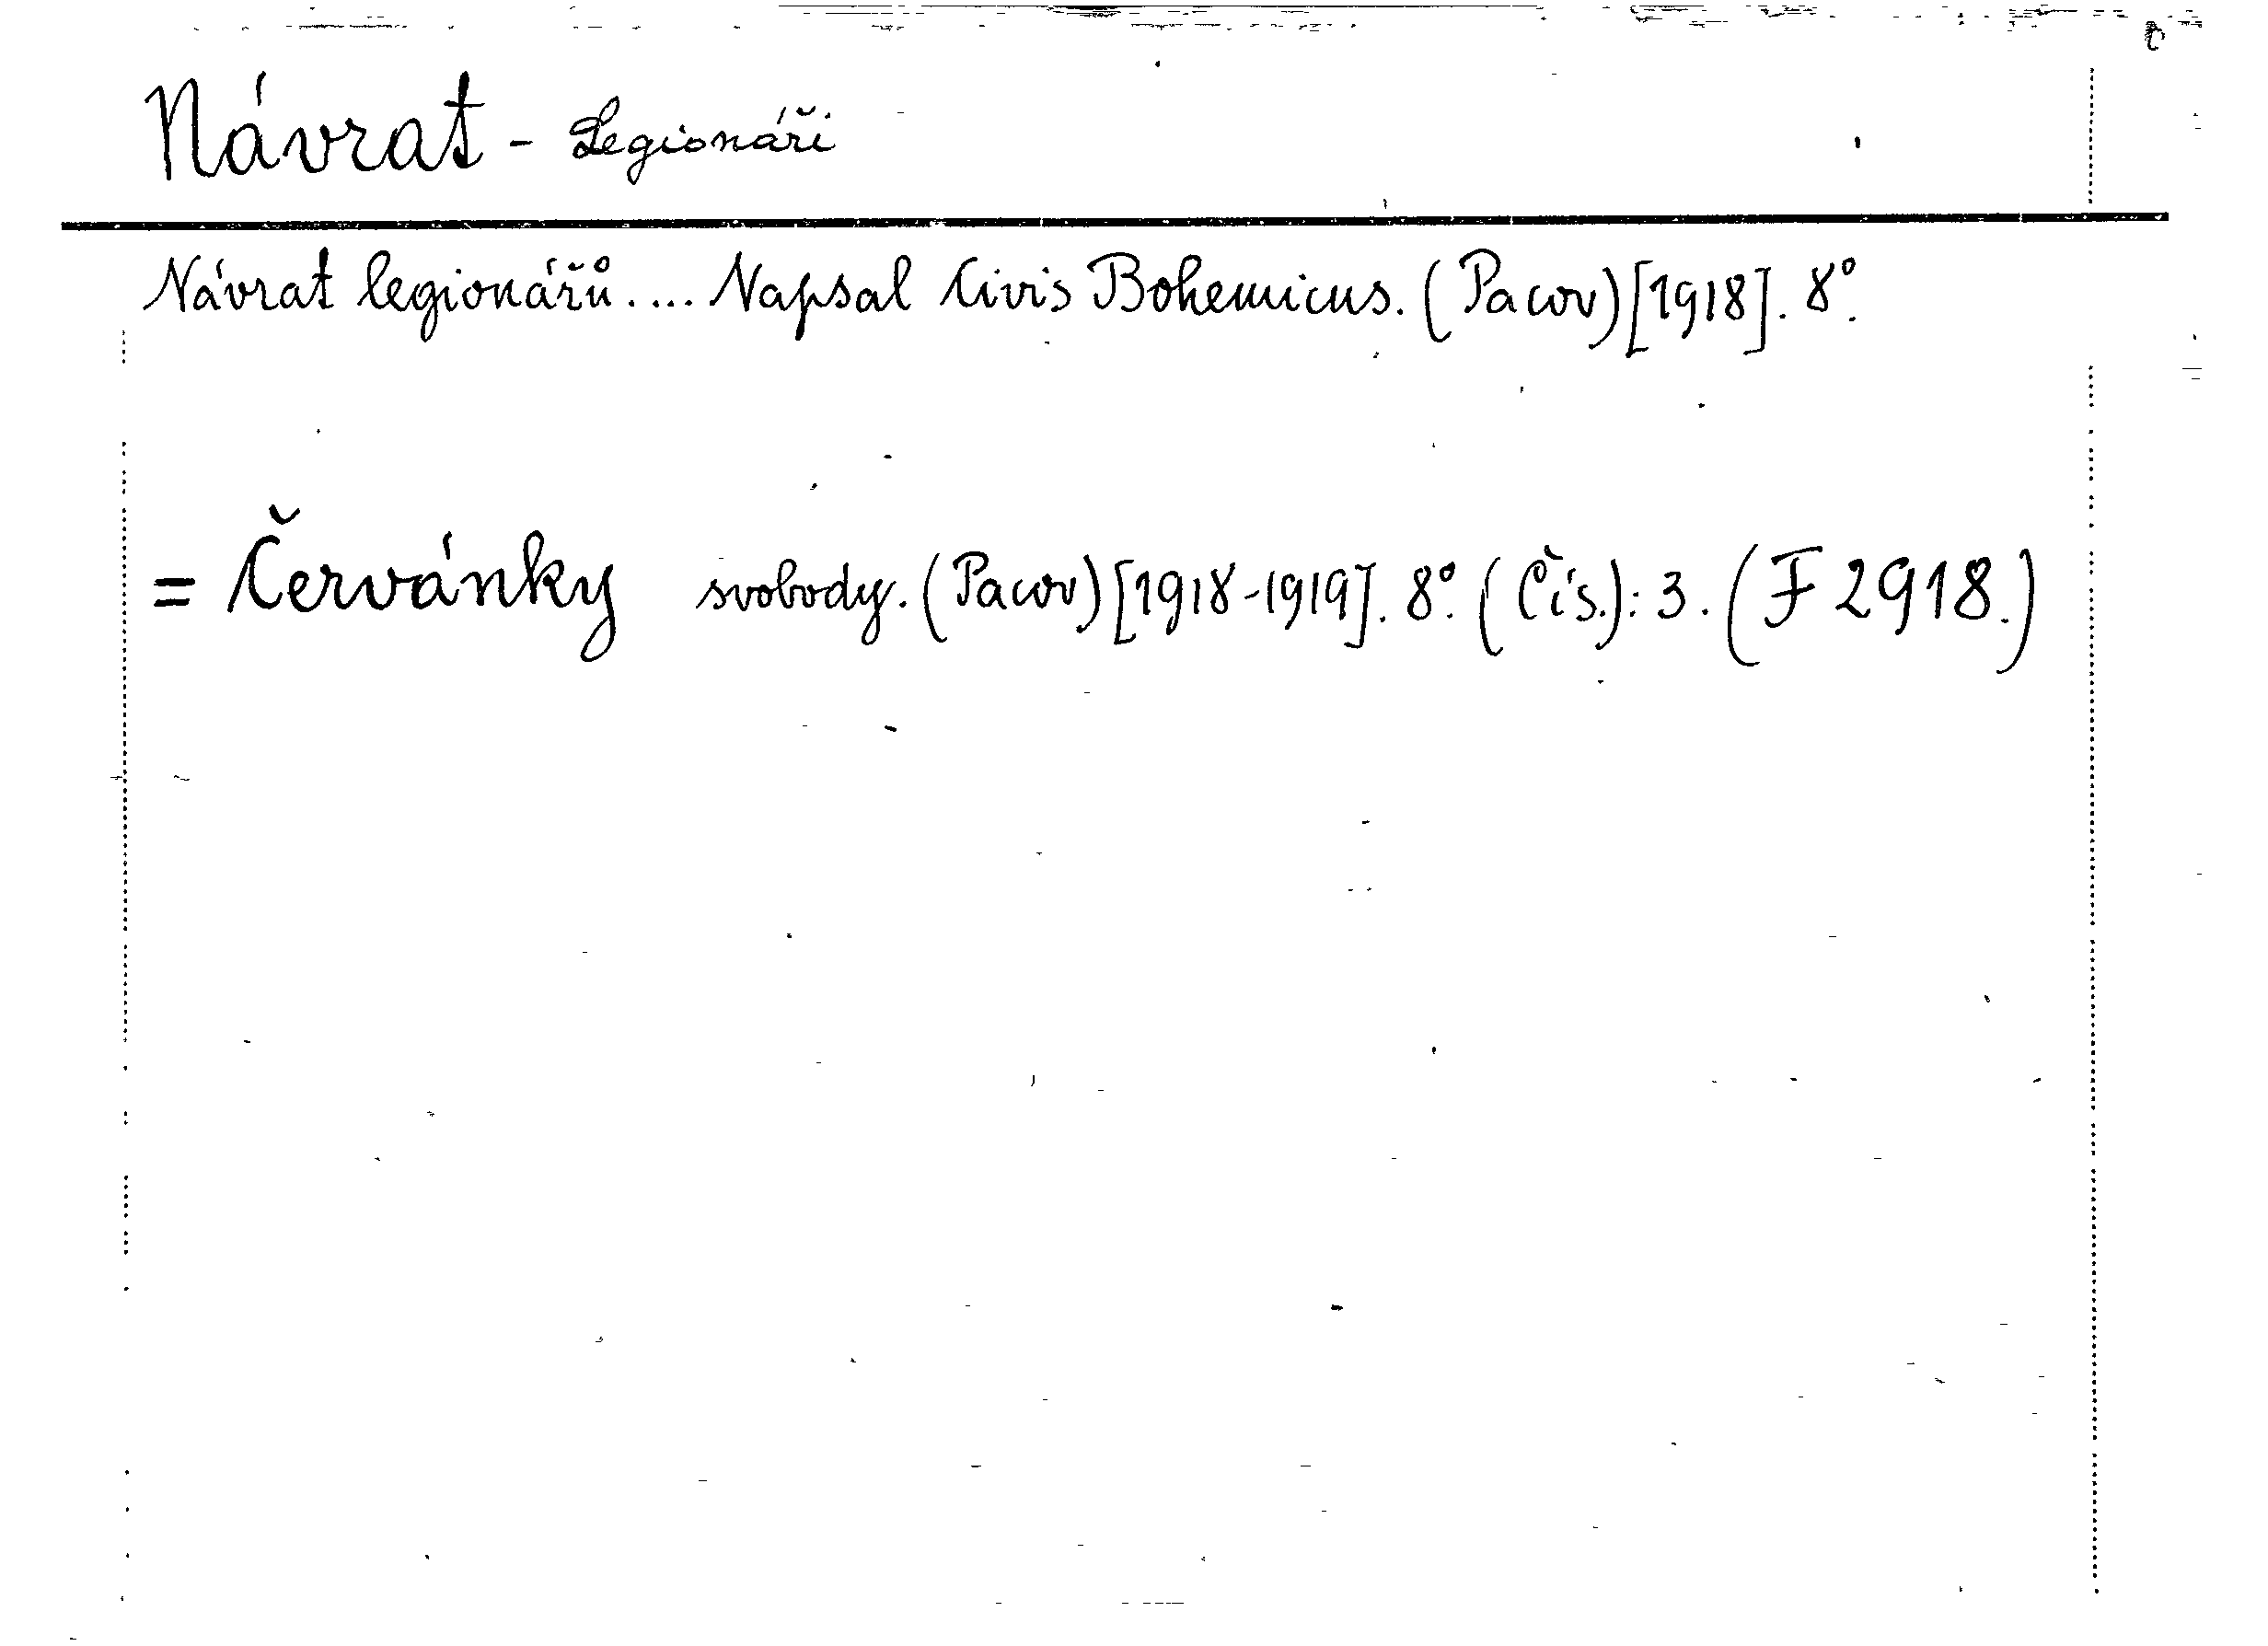 Návrat - Legionáři
Návrat legionářů.... Napsal Civis Bohemicus. (Pacov) [1918]. 8°.
= Červánky svobody. (Pacov) [1918-1919]. 8°. (Čís.): 3. (F 2918.)